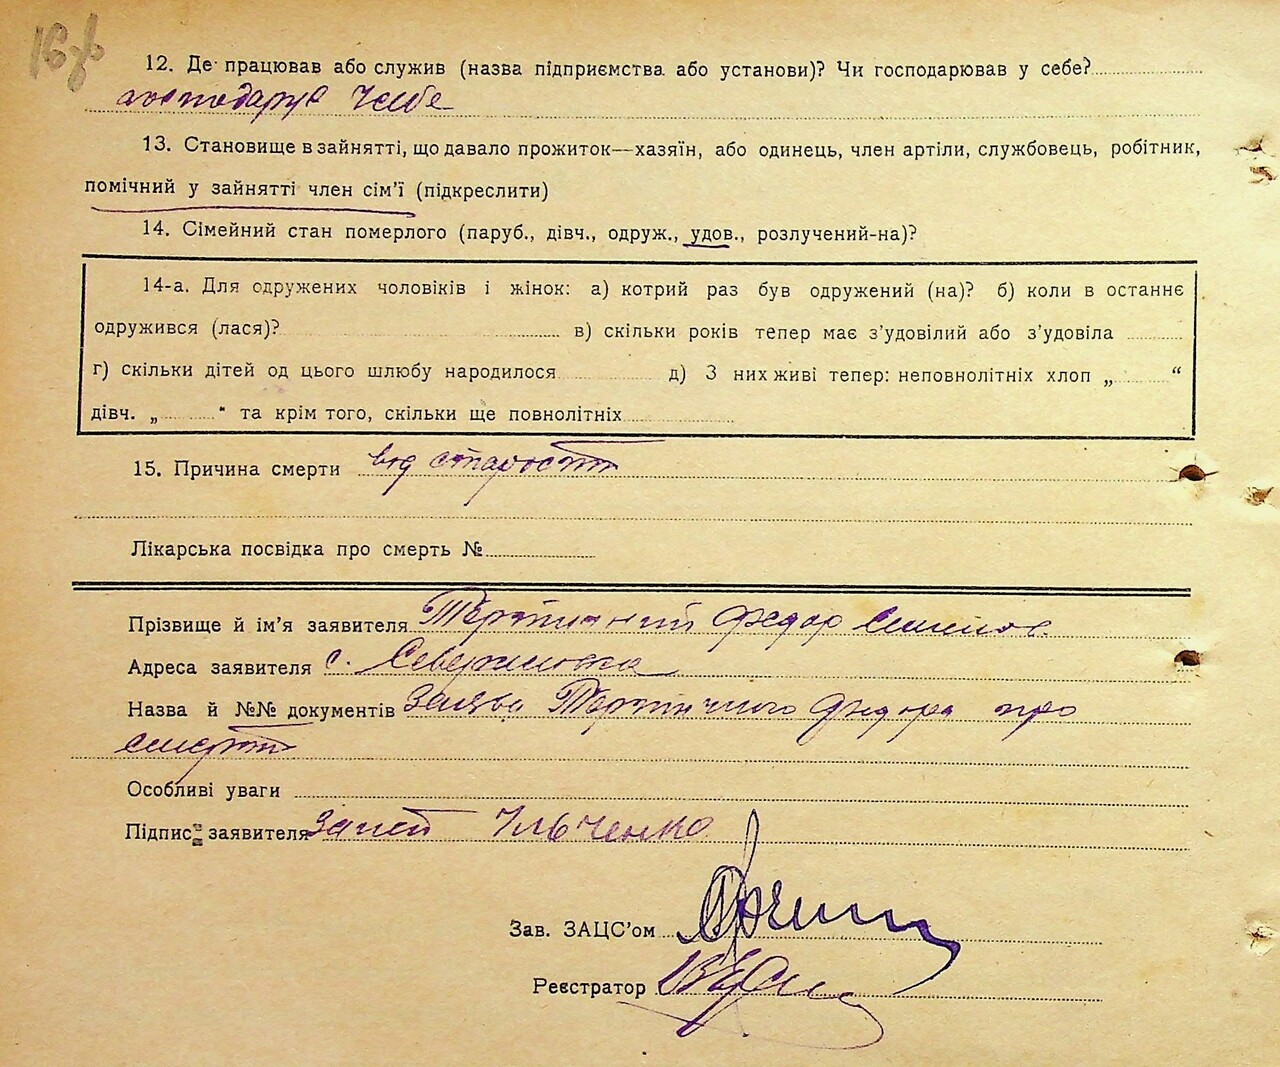 16зв
12. Де працював або служив (назва підприємства або установи)? Чи господарював у себе?
господарує у себе
13. Становище в зайнятті, що давало прожиток—хазяїн, або одинець, член артілі, службовець, робітник,
помічний у зайнятті член сім'ї (підкреслити)
14. Сімейний стан померлого (паруб., дівч., одруж., удов., розлучений-на)?
14-а. Для одружених чоловіків і жінок: а) котрий раз був одружений (на)? б) коли в останнє
одружився (лася)? в) скільки років тепер має з'удовілий або з'удовіла
г) скільки дітей од цього шлюбу народилося д) З них живі тепер: неповнолітніх хлоп „ “
дівч. „ “ та крім того, скільки ще повнолітніх
15. Причина смерти від старости
Лікарська посвідка про смерть №
Прізвище й ім'я заявителя Тертичний Федор
Адреса заявителя с.
Назва й №№ документів заява Тертичного Федора про
смерть
Особливі уваги
Підпис заявителя Ільченко
Зав. ЗАЦС'ом
Реєстратор